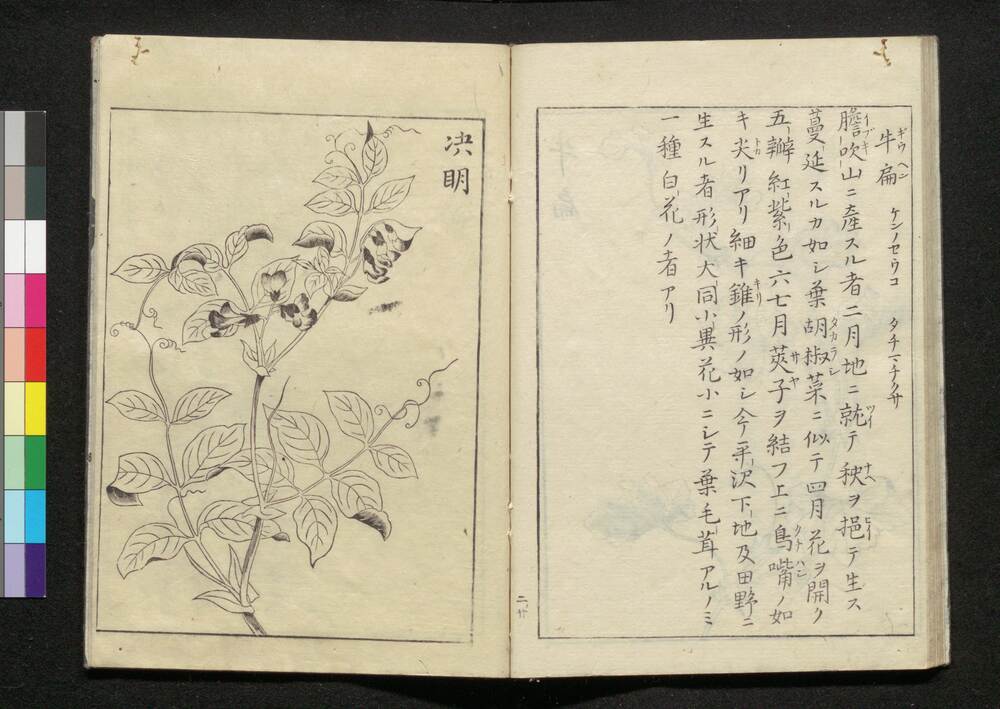 牛扁 ギウヘン ケンノセウコ タチマチクサ
膽吹山ニ產スル者二月地ニ就テ秧ヲ挹テ生ス
蔓延スルカ如シ葉胡椒菜ニ似テ四月花ヲ開ク
五瓣紅紫色六七月莢子ヲ結フ上ニ鳥嘴ノ如
キ尖リアリ細キ錐ノ形ノ如シ今平沢下地及田野ニ
生スル者形状大同小異花小ニシテ葉毛茸アルノミ
一種白花ノ者アリ
決明